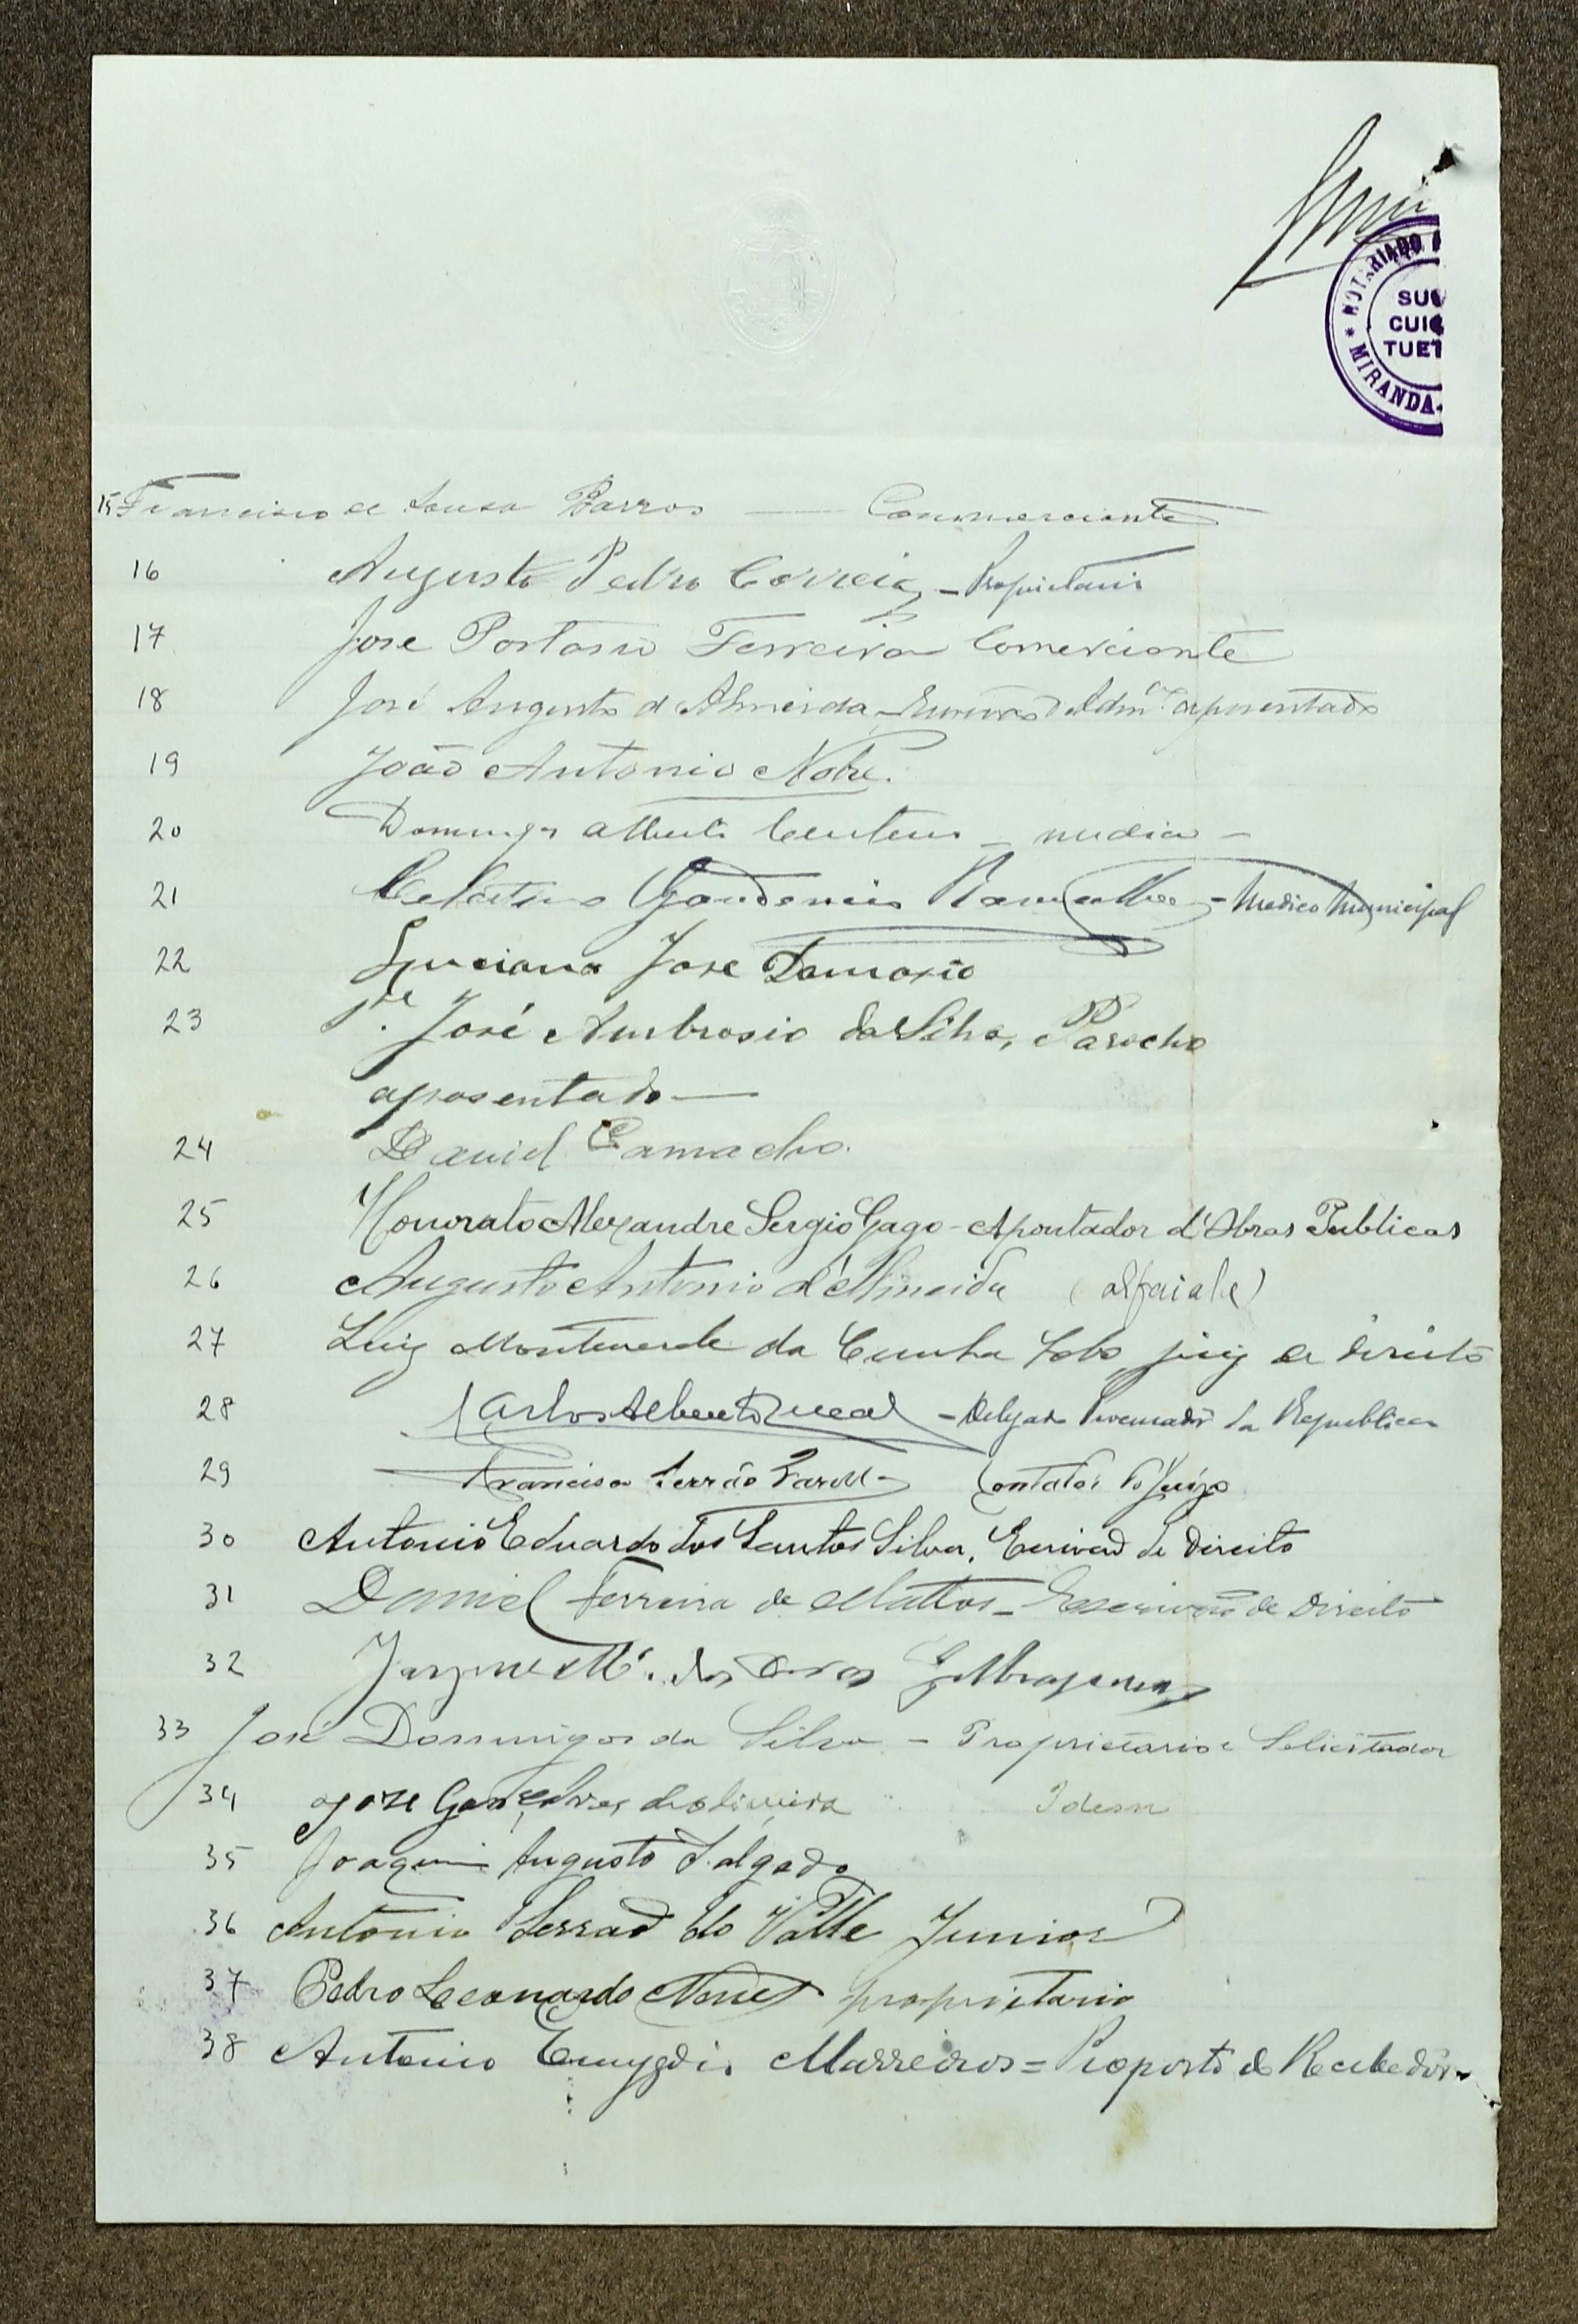 NOTARIADO
SU
CUI
TUET
* MIRANDA-
15 Francisco de Sousa Barros — Commerciante
16 Augusto Pedro Correia, - Proprietario
17 Jose Portasio Ferreira Comerciante
18 José Augusto d'Almeida - Escrivão d'Adm.ção aposentado
19 João Antonio Nobre.
20 Domingos Alberto Centeno - medico -
21 Celestino Gaudencio Ramalho - Medico Municipal
22 Luciano Jose Damasio
23 P.e José Ambrosio da Silva, Parocho
aposentado —
24 Daniel Camacho.
25 Honorato Alexandre Sergio Gago - Apontador d'Obras Publicas
26 Augusto Antonio d'Almeida (alfaiate)
27 Luiz Monteverde da Cunha Lobo, juiz de direito
28 Carlos Alberto Leal - Delegado Procurador da Republica
29 Francisco Serrão Contador do Juizo
30 Antonio Eduardo dos Santos Silva, Escrivão de direito
31 Daniel Ferreira de Mattos - Escrivão de Direito
32
33 José Domingos da Silva - Proprietario e Solicitador
34 José Gonçalves de Oliveira Idem
35 Joaquim Augusto Salgado
36 Antonio Serrão do Valle Junior
37 Pedro Leonardo Nunes proprietario
38 Antonio Emygdio Marreiros = Proposto de Recebedor -